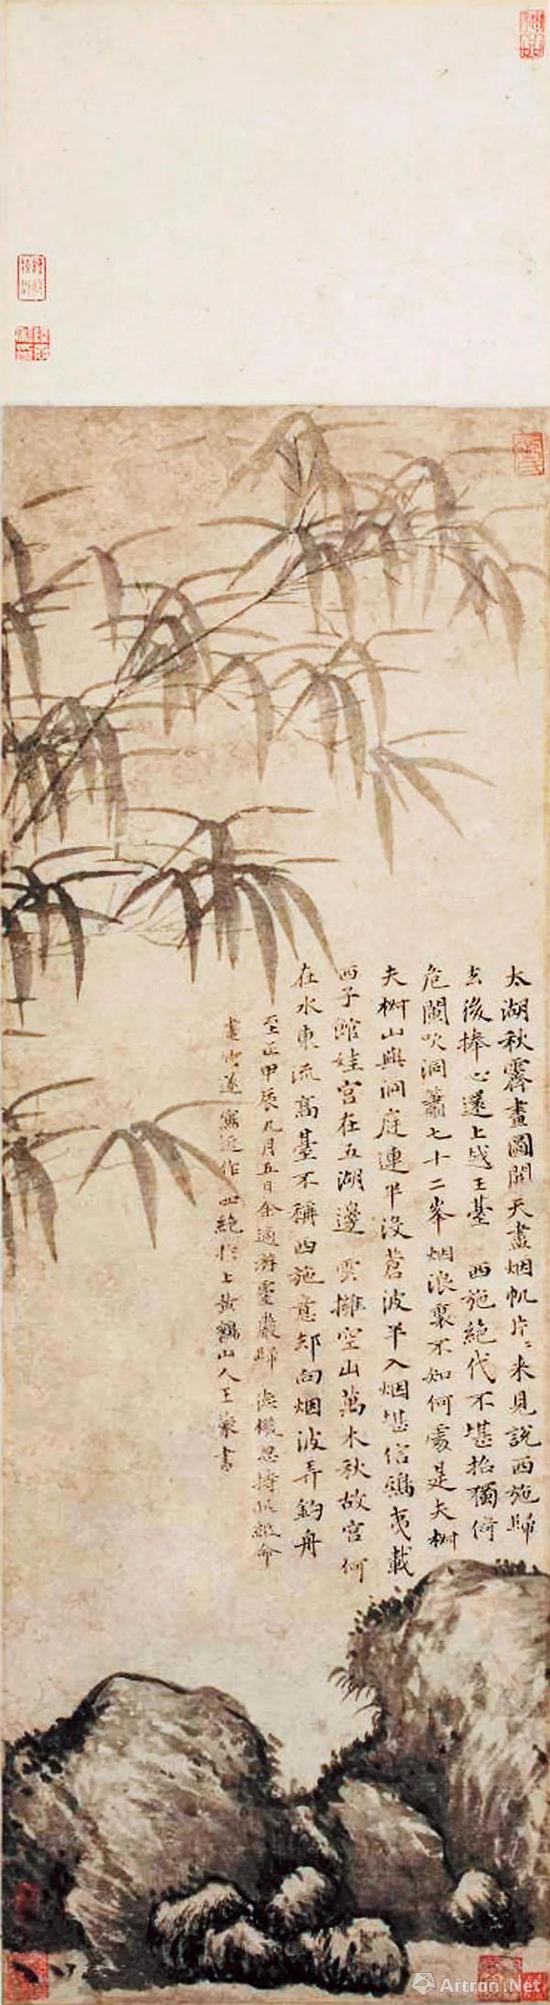 太湖秋霽畫圖開天盡烟帆片〻来見說西施歸
去後捧心還上越王臺 西施絶代不堪招獨倚
危闌吹洞簫七十二峯烟浪裏不知何處是夫椒
夫椒山與洞庭連半没蒼波半入烟堪信鴟夷載
西子館娃宫在五湖邊 雲擁空山萬木秋故宫何
在水東流高臺不稱西施意却向烟波弄釣舟
至正甲辰九月五日余適游靈巖歸 德機忽持此紙命
畫竹遂寫近作四絶於上黄鶴山人王蒙書
Artron.Net